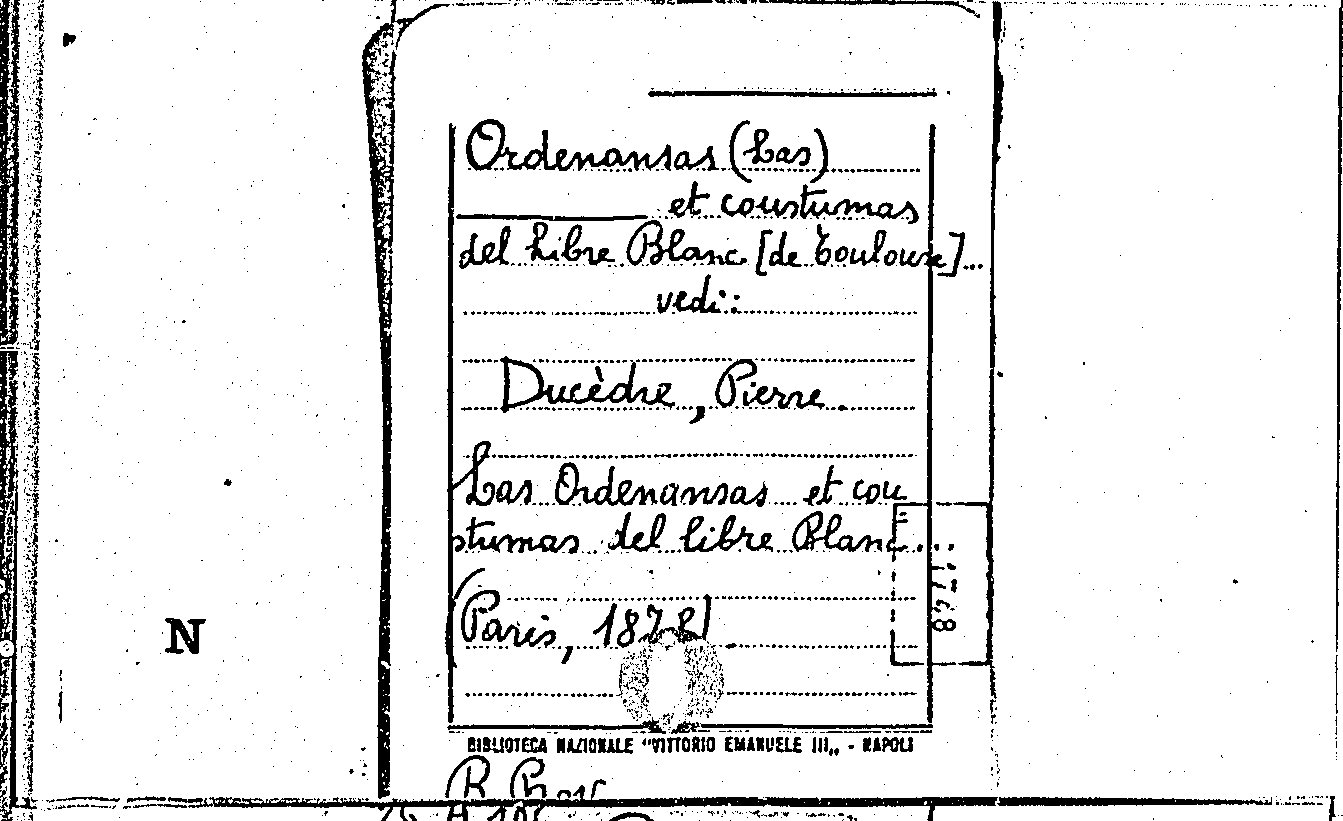 Ordenansas (Las)
et coustumas
del Libre Blanc [de Toulouse]...
vedi:
Ducèdre, Pierre.
Las Ordenansas et cou
stumas del libre Blanc...
(Paris, 1878)
1748
N
BIBLIOTECA NAZIONALE "VITTORIO EMANUELE III„ - NAPOLI